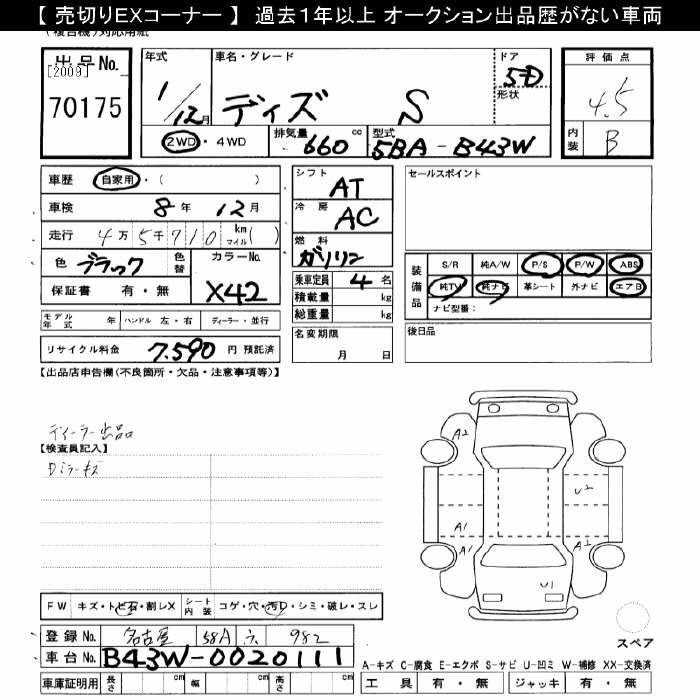 【 売切りEXコーナー 】 過去1年以上 オークション出品歴がない車両
(複合機)対応用紙
出品No.
[2009]
70175
年式
1/12月
車名・グレード
デイズ S
ドア
5D
形状
評価点
4.5
内装
B
2WD・4WD
排気量 660 cc
型式 5BA-B43W
車歴 自家用・( )
車検 8年 12月
走行 4万5千710 km マイル( )
色 ブラック 色替
カラーNo. X42
保証書 有・無
シフト
AT
冷房
AC
燃料
ガソリン
乗車定員 4 名
積載量 kg
総重量 kg
セールスポイント
装備品
S/R 純A/W P/S P/W ABS
純TV 純ナビ 革シート 外ナビ エアB
ナビ型番:
モデル年式 年 ハンドル 左・右 ディーラー・並行
名変期限
月 日
後日品
リサイクル料金 7.590 円 預託済
【出品店申告欄(不良箇所・欠品・注意事項等)】
ディーラー出品
【検査員記入】
Dミラーキズ
A2
U2
A1
A1
A2
U1
FW キズ・トビ石・割レX シート内装 コゲ・穴・汚D・シミ・破レ・スレ
スペア
登録No. 名古屋 58A 982
車台No. B43W-0020111
車庫証明用 長さ cm 幅 cm 高さ cm
A-キズ C-腐食 E-エクボ S-サビ U-凹ミ W-補修 XX-交換済
工具 有・無 ジャッキ 有・無